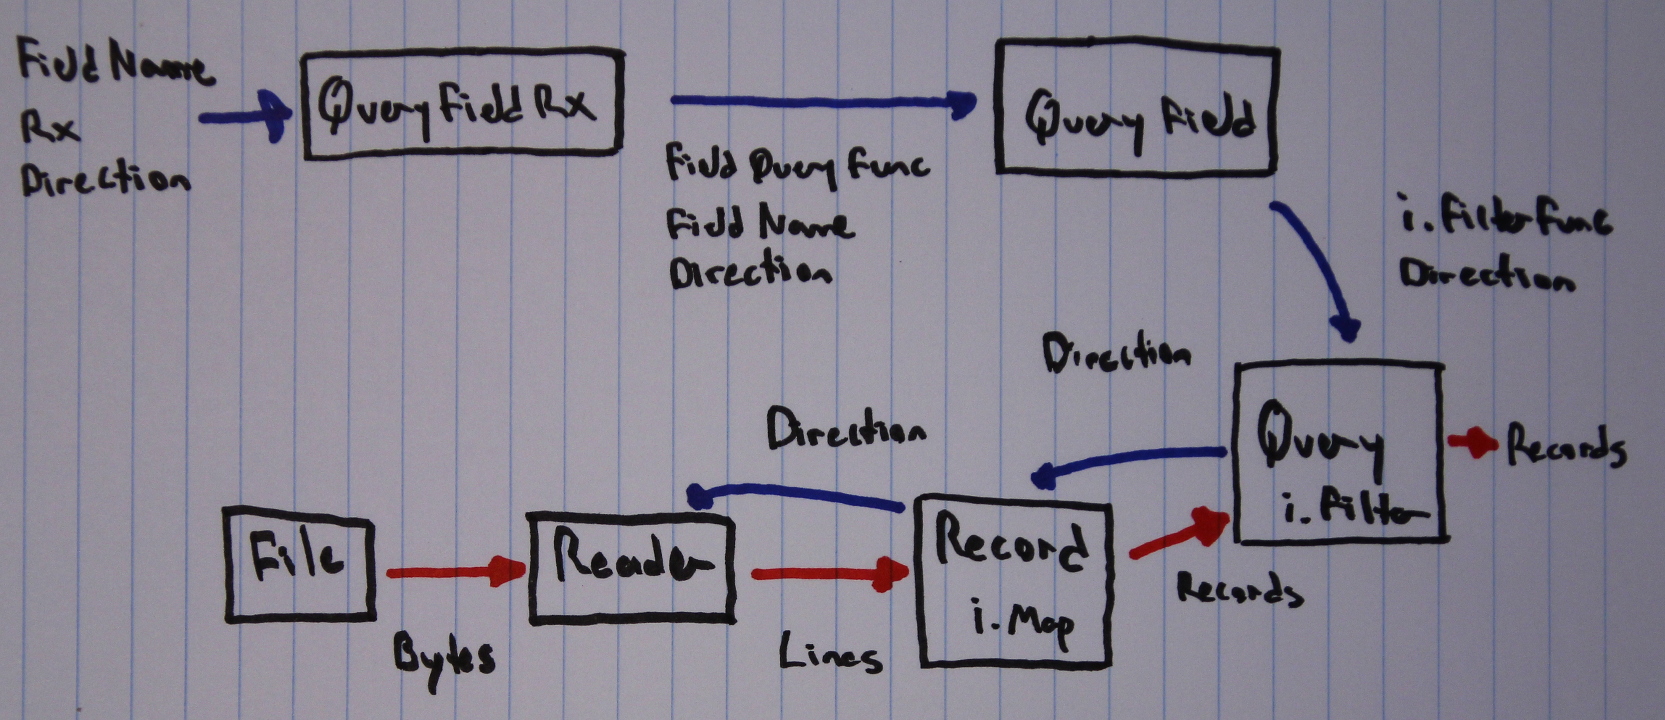 Field Name
Rx
Direction
QueryFieldRx
Field Query Func
Field Name
Direction
QueryField
i.FilterFunc
Direction
Direction
Direction
Query
i.Filter
Records
File
Bytes
Reader
Lines
Record
i.Map
Records